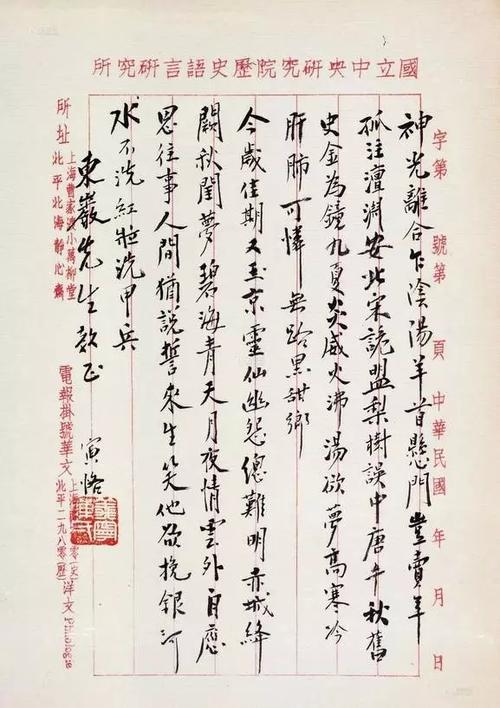 國立中央研究院歷史語言研究所
字第 號第 頁 中華民國 年 月 日
神光離合乍陰陽羊首懸門豈賣羊
孤注澶淵安北宋詭盟梨樹誤中唐千秋舊
史金為鏡九夏炎威火沸湯欲夢高寒冷
肝肺可憐無路黑甜鄉
今歲佳期又玉京靈仙幽怨總難明赤城絳
闕秋閨夢碧海青天月夜情雲外自應
思往事人間猶說誓來生笑他欲挽銀河
水不洗紅粧洗甲兵
東巖先生教正
寅恪
所址
上海曹家渡小萬柳堂
北平北海靜心齋
電報掛號華文
上海 零(史)
北平二九八零(歷)
洋文 Philologie